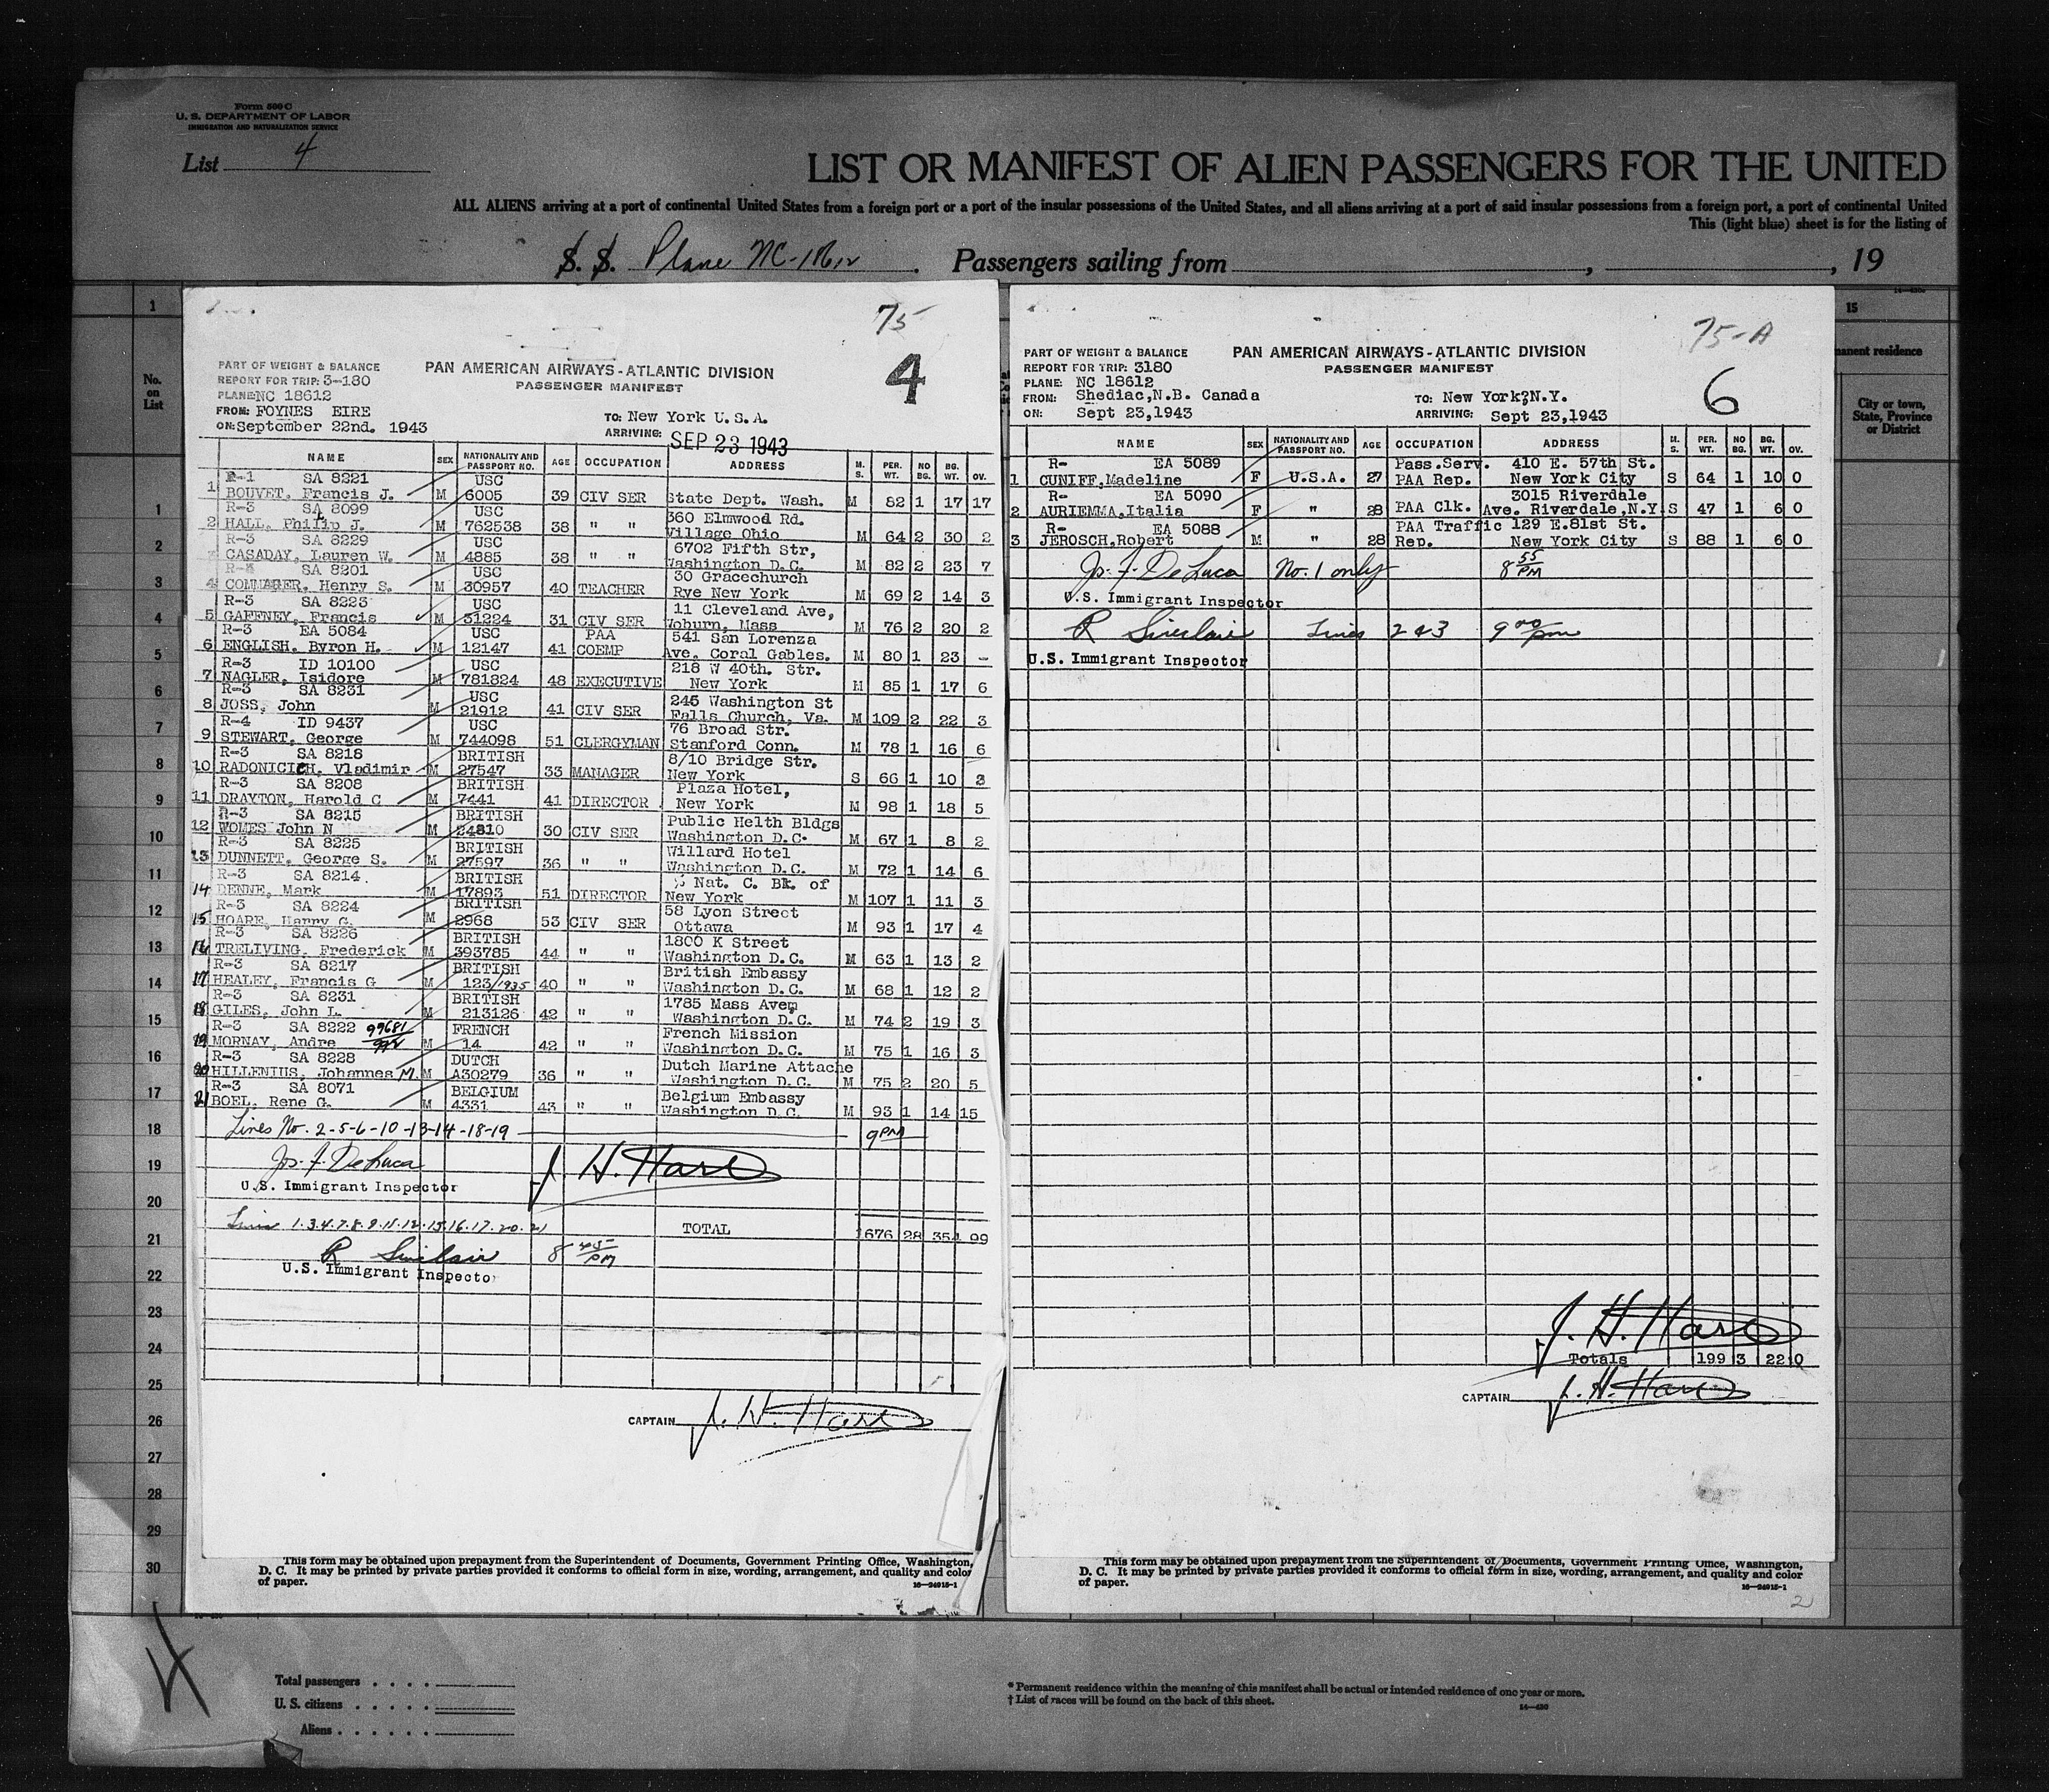 Form 500 C
U. S. DEPARTMENT OF LABOR
IMMIGRATION AND NATURALIZATION SERVICE
List 4
LIST OR MANIFEST OF ALIEN PASSENGERS FOR THE UNITED
ALL ALIENS arriving at a port of continental United States from a foreign port or a port of the insular possessions of the United States, and all aliens arriving at a port of said insular possessions from a foreign port, a port of continental United
This (light blue) sheet is for the listing of
S. S. Plane NC-18612. Passengers sailing from , , 19
1
No. on List
75
4
PART OF WEIGHT & BALANCE
REPORT FOR TRIP: 3-180
PLANE: NC 18612
FROM: FOYNES EIRE
ON: September 22nd. 1943
PAN AMERICAN AIRWAYS-ATLANTIC DIVISION
PASSENGER MANIFEST
TO: New York U.S.A.
ARRIVING: SEP 23 1943
NAME SEX NATIONALITY AND PASSPORT NO. AGE OCCUPATION ADDRESS M. S. PER. WT. NO BG. BG. WT. OV.
R-1 SA 8221 USC
1 BOUVET, Francis J. M 6005 39 CIV SER State Dept. Wash. M 82 1 17 17
R-3 SA 8099 USC 360 Elmwood Rd.
2 HALL, Philip J. M 762538 38 " " Village Ohio M 64 2 30 2
R-3 SA 8229 USC 6702 Fifth Str,
CASADAY, Lauren W. M 4885 38 " " Washington D.C. M 82 2 23 7
SA 8201 USC 30 Gracechurch
4 COMMAGER, Henry S. M 30957 40 TEACHER Rye New York M 69 2 14 3
R-3 SA 8223 USC 11 Cleveland Ave,
5 GAFFNEY, Francis M 31224 31 CIV SER Woburn, Mass M 76 2 20 2
R-3 EA 5084 USC PAA 541 San Lorenza
6 ENGLISH, Byron H. M 12147 41 COEMP Ave. Coral Gables. M 80 1 23 -
R-3 ID 10100 USC 218 W 40th. Str.
7 NAGLER, Isidore M 781824 48 EXECUTIVE New York M 85 1 17 6
R-3 SA 8231 USC 245 Washington St
8 JOSS, John M 21912 41 CIV SER Falls Church, Va. M 109 2 22 3
R-4 ID 9437 USC 76 Broad Str.
9 STEWART, George M 744098 51 CLERGYMAN Stanford Conn. M 78 1 16 6
R-3 SA 8218 BRITISH 8/10 Bridge Str.
10 RADONICICH, Vladimir M 27547 33 MANAGER New York S 66 1 10 3
R-3 SA 8208 BRITISH Plaza Hotel,
11 DRAYTON, Harold C M 7441 41 DIRECTOR New York M 98 1 18 5
R-3 SA 8215 BRITISH Public Helth Bldgs
12 WOMES John N M 24810 30 CIV SER Washington D.C. M 67 1 8 2
R-3 SA 8225 BRITISH Willard Hotel
13 DUNNETT, George S. M 27597 36 " " Washington D.C. M 72 1 14 6
R-3 SA 8214 BRITISH Nat. C. Bk. of
14 DENNE, Mark M 17893 51 DIRECTOR New York M 107 1 11 3
R-3 SA 8224 BRITISH 58 Lyon Street
15 HOARE, Harry G. M 2968 53 CIV SER Ottawa M 93 1 17 4
R-3 SA 8226 BRITISH 1800 K Street
16 TRELIVING, Frederick M 393785 44 " " Washington D.C. M 63 1 13 2
R-3 SA 8217 BRITISH British Embassy
17 HEALEY, Francis G M 123/1935 40 " " Washington D.C. M 68 1 12 2
R-3 SA 8231 BRITISH 1785 Mass Avem
18 GILES, John L. M 213126 42 " " Washington D.C. M 74 2 19 3
R-3 SA 8222 99681 FRENCH French Mission
19 MORNAY, Andre M 14 42 " " Washington D.C. M 75 1 16 3
R-3 SA 8228 DUTCH Dutch Marine Attache
20 HILLENIUS, Johannes M. M A30279 36 " " Washington D.C. M 75 2 20 5
R-3 SA 8071 BELGIUM Belgium Embassy
21 BOEL, Rene G. M 4331 43 " " Washington D.C. M 93 1 14 15
Lines No. 2-5-6-10-13-14-18-19 9 PM
Jos. F. DeLuca J. H. Hart
U.S. Immigrant Inspector
Lines 1.3.4.7.8.9.11.12.15.16.17.20.21 TOTAL 1676 28 354 99
R Sinclair 8 45 PM
U.S. Immigrant Inspector
CAPTAIN J. H. Hart
This form may be obtained upon prepayment from the Superintendent of Documents, Government Printing Office, Washington,
D. C. It may be printed by private parties provided it conforms to official form in size, wording, arrangement, and quality and color
of paper.
16-24915-1
75-A
6
PART OF WEIGHT & BALANCE
REPORT FOR TRIP: 3180
PLANE: NC 18612
FROM: Shediac,N.B. Canada
ON: Sept 23,1943
PAN AMERICAN AIRWAYS-ATLANTIC DIVISION
PASSENGER MANIFEST
TO: New York?N.Y.
ARRIVING: Sept 23,1943
NAME SEX NATIONALITY AND PASSPORT NO. AGE OCCUPATION ADDRESS M. S. PER. WT. NO BG. BG. WT. OV.
R- EA 5089 Pass.Serv. 410 E. 57th St.
1 CUNIFF,Madeline F U.S.A. 27 PAA Rep. New York City S 64 1 10 0
R- EA 5090 3015 Riverdale
2 AURIEMMA,Italia F " 28 PAA Clk. Ave. Riverdale,N.Y. S 47 1 6 0
R- EA 5088 PAA Traffic 129 E.81st St.
3 JEROSCH,Robert M " 28 Rep. New York City S 88 1 6 0
Jos. F. DeLuca No. 1 only 8 55 PM
U.S. Immigrant Inspector
R Sinclair Lines 2 & 3 9 00 pm
U.S. Immigrant Inspector
J. H. Hart
Totals 199 3 22 0
CAPTAIN J. H. Hart
This form may be obtained upon prepayment from the Superintendent of Documents, Government Printing Office, Washington,
D. C. It may be printed by private parties provided it conforms to official form in size, wording, arrangement, and quality and color
of paper.
16-24915-1
2
15
manent residence
City or town, State, Province or District
1
2
3
4
5
6
7
8
9
10
11
12
13
14
15
16
17
18
19
20
21
22
23
24
25
26
27
28
29
30
Total passengers
U. S. citizens
Aliens
* Permanent residence within the meaning of this manifest shall be actual or intended residence of one year or more.
† List of races will be found on the back of this sheet.
14-430